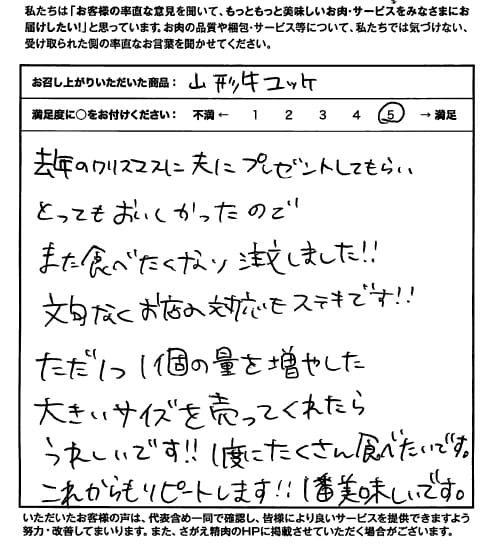 私たちは「お客様の率直な意見を聞いて、もっともっと美味しいお肉・サービスをみなさまにお
届けしたい!」と思っています。お肉の品質や梱包・サービス等について、私たちでは気づけない、
受け取られた側の率直なお言葉を聞かせてください。
お召し上がりいただいた商品： 山形牛ユッケ
満足度に○をお付けください： 不満 ← 1 2 3 4 5 → 満足
去年のクリスマスに夫にプレゼントしてもらい
とってもおいしかったので
また食べたくなり注文しました!!
文句なくお店の対応もステキです!!
ただ1つ 1個の量を増やした
大きいサイズを売ってくれたら
うれしいです!! 1度にたくさん食べたいです。
これからもリピートします!! 1番美味しいです。
いただいたお客様の声は、代表含め一同で確認し、皆様により良いサービスを提供できますよう
努力・改善してまいります。また、さがえ精肉のHPに掲載させていただく場合がございます。